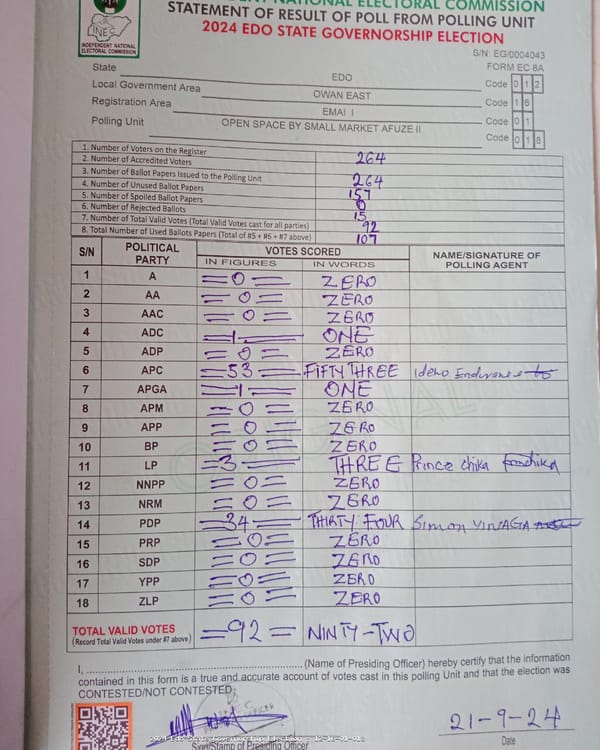 INDEPENDENT NATIONAL ELECTORAL COMMISSION
STATEMENT OF RESULT OF POLL FROM POLLING UNIT
2024 EDO STATE GOVERNORSHIP ELECTION
INEC
INDEPENDENT NATIONAL
ELECTORAL COMMISSION
S/N: EG/0004043
FORM EC 8A
State EDO Code 0 1 2
Local Government Area OWAN EAST Code 1 6
Registration Area EMAI I Code 0 1
Polling Unit OPEN SPACE BY SMALL MARKET AFUZE II Code 0 1 8
1. Number of Voters on the Register 264
2. Number of Accredited Voters
3. Number of Ballot Papers Issued to the Polling Unit 264
4. Number of Unused Ballot Papers 157
5. Number of Spoiled Ballot Papers 0
6. Number of Rejected Ballots 15
7. Number of Total Valid Votes (Total Valid Votes cast for all parties) 92
8. Total Number of Used Ballots Papers (Total of #5 + #6 + #7 above) 107
S/N POLITICAL PARTY VOTES SCORED NAME/SIGNATURE OF POLLING AGENT
IN FIGURES IN WORDS
1 A =0= ZERO
2 AA =0= ZERO
3 AAC =0= ZERO
4 ADC =1= ONE
5 ADP =0= ZERO
6 APC =53= FIFTY THREE
7 APGA =1= ONE
8 APM =0= ZERO
9 APP =0= ZERO
10 BP =0= ZERO
11 LP =3= THREE Prince chika
12 NNPP =0= ZERO
13 NRM =0= ZERO
14 PDP =34= THIRTY FOUR Simon
15 PRP =0= ZERO
16 SDP =0= ZERO
17 YPP =0= ZERO
18 ZLP =0= ZERO
TOTAL VALID VOTES =92= NINTY-TWO
(Record Total Valid Votes under #7 above)
I, (Name of Presiding Officer) hereby certify that the information
contained in this form is a true and accurate account of votes cast in this polling Unit and that the election was
CONTESTED/NOT CONTESTED.
21-9-24
Sign/Stamp of Presiding Officer Date